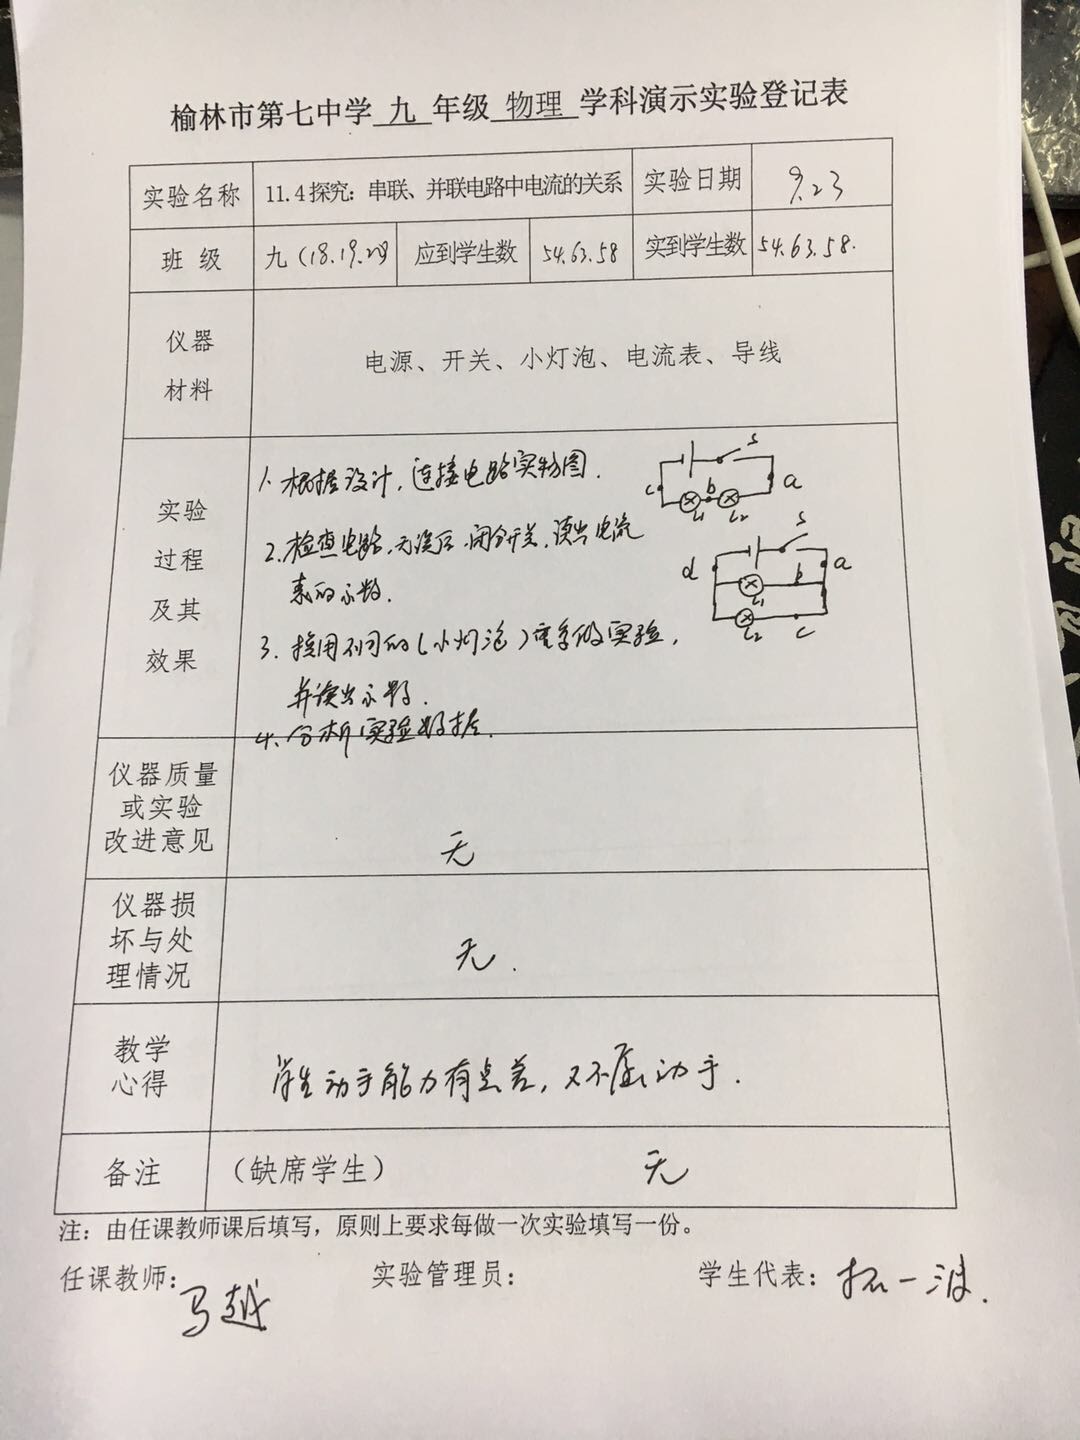 榆林市第七中学 九 年级 物理 学科演示实验登记表
实验名称 11.4探究：串联、并联电路中电流的关系 实验日期 9.23
班 级 九（18.19.20） 应到学生数 54.63.58 实到学生数 54.63.58.
仪器
材料
电源、开关、小灯泡、电流表、导线
实验
过程
及其
效果
1. 根据设计，连接电路实物图．
2. 检查电路，无误后，闭合开关，读出电流
表的示数．
3. 换用不同的（小灯泡）重复做实验，
并读出示数．
4. 分析实验数据．
S
c b a
L1 L2
S
d b a
L1
L2 c
仪器质量
或实验
改进意见
无
仪器损
坏与处
理情况
无．
教学
心得
学生动手能力有点差，又不愿动手．
备注 （缺席学生） 无
注：由任课教师课后填写，原则上要求每做一次实验填写一份。
任课教师：马越 实验管理员： 学生代表：拓一波．